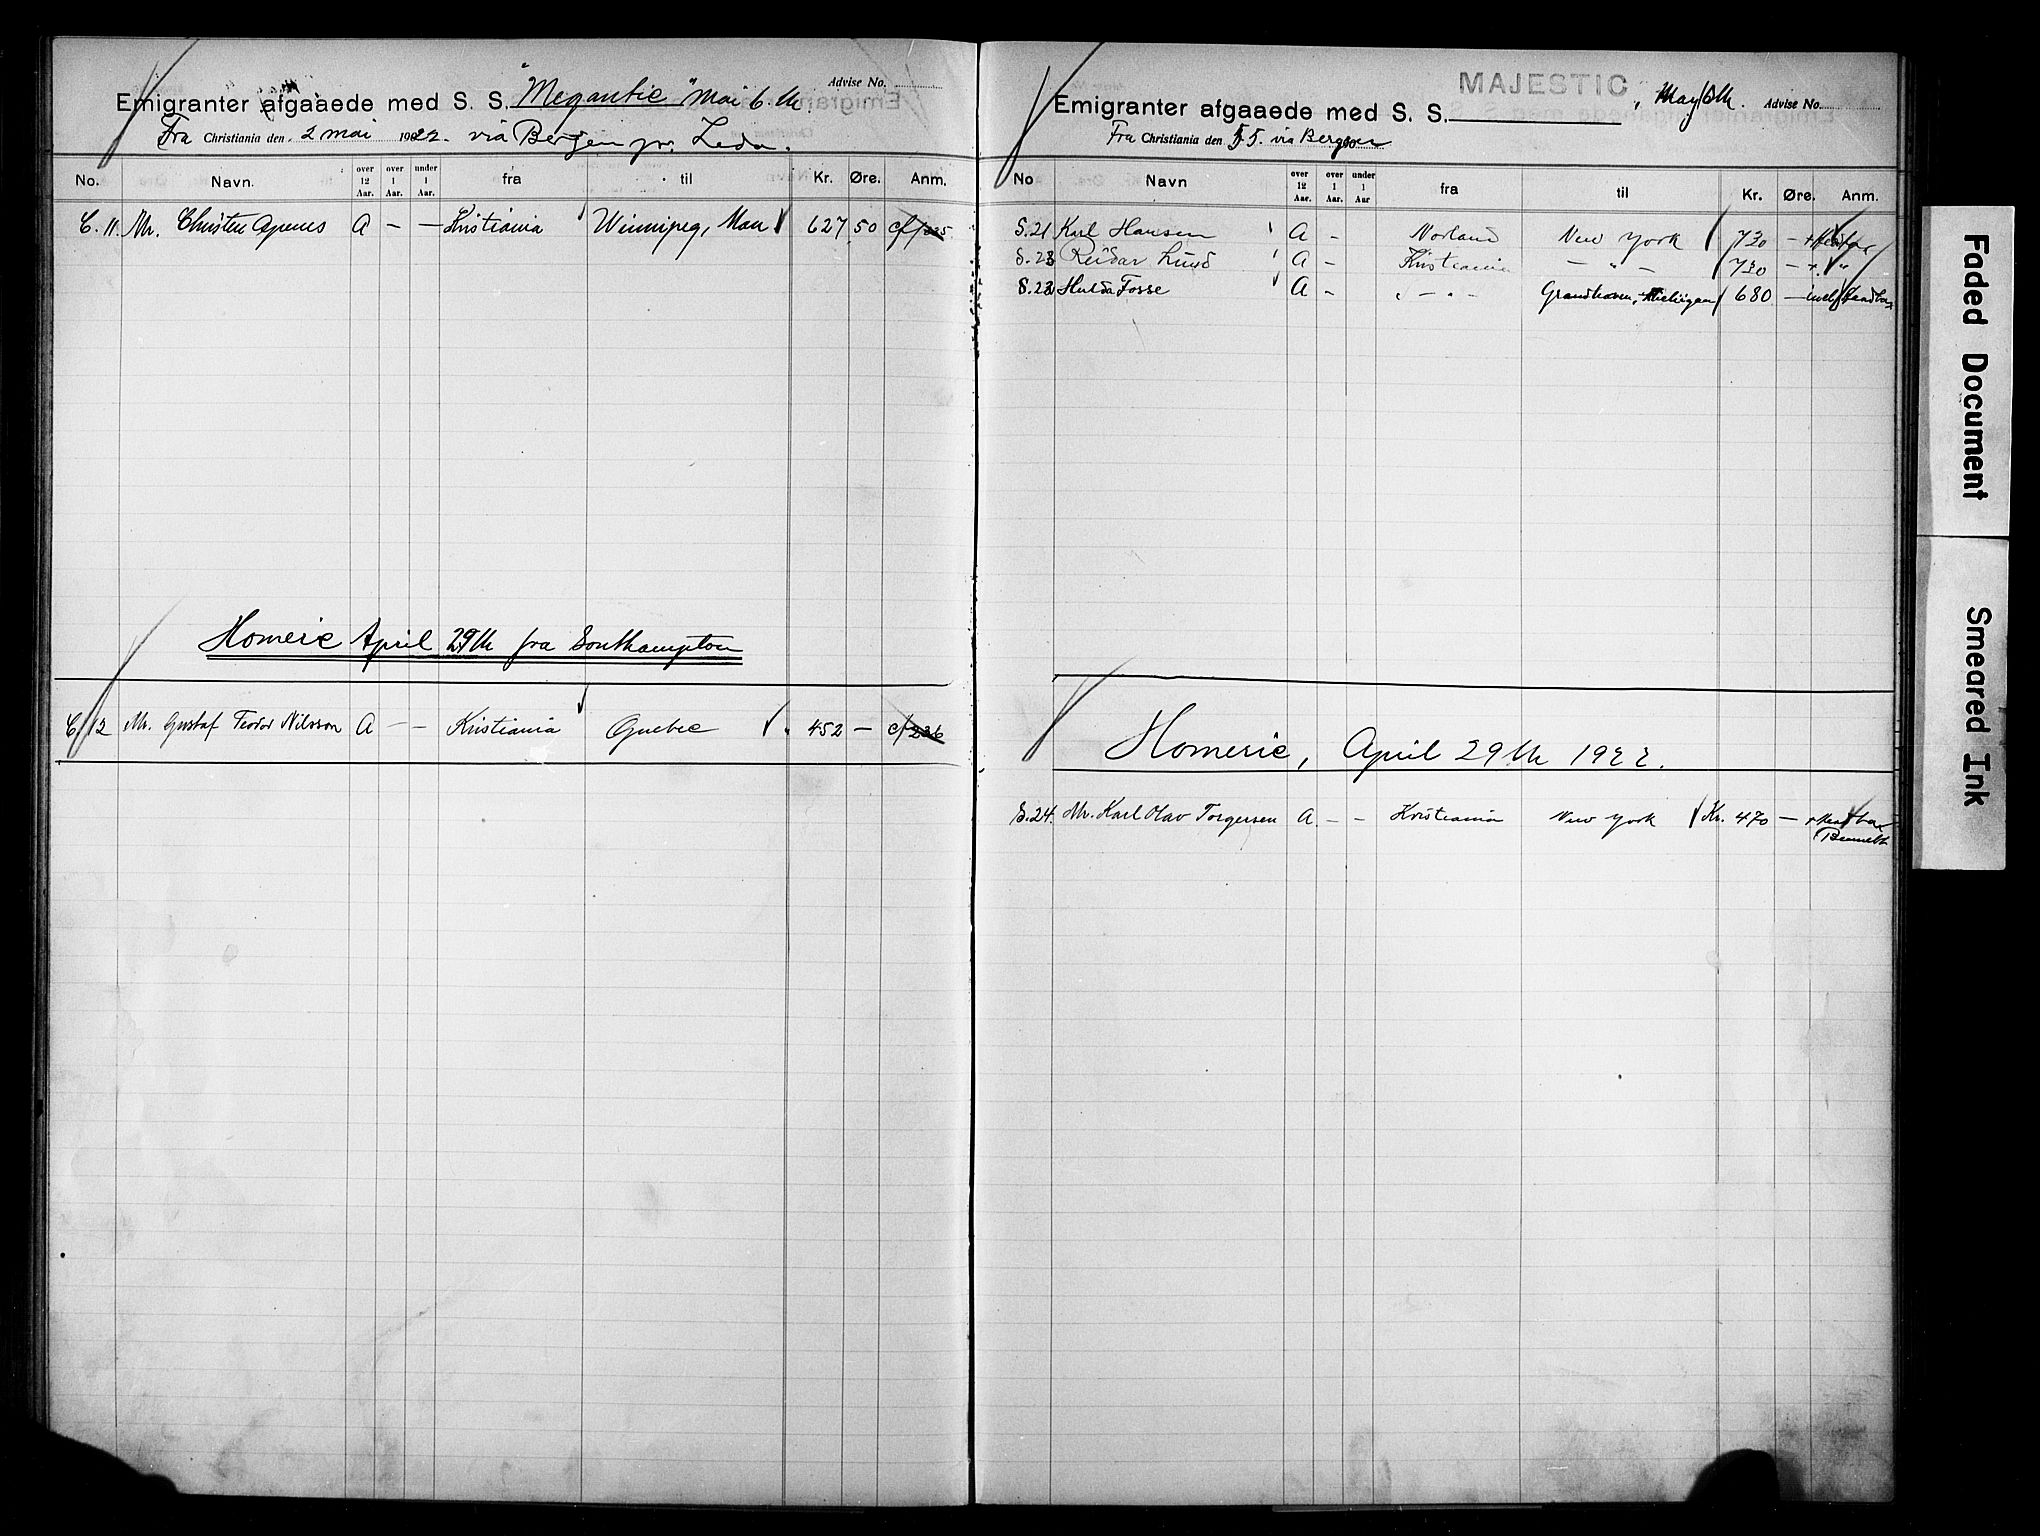 Advise No.
Emigranter afgaaede med S. S. "Megantic" Mai 6. th.
Fra Christiania den 2 mai 1922. via Bergen pr. Leda.
No. Navn. over 12 Aar. over 1 Aar. under 1 Aar. fra til Kr. Øre. Anm.
C. 11. Mr. Christen Apenes A - - Kristiania Winnipeg, Man 627 50 cf 
Homeric April 29th fra Southampton
C. 12 Mr. Gustaf Teodor Nilsson A - - Kristiania Quebec 452 - cf 236
MAJESTIC
Emigranter afgaaede med S. S. , May Advise No.
Fra Christiania den 5. via Bergen
No Navn over 12 Aar. over 1 Aar. under 1 Aar fra til Kr. Øre. Anm.
S. 21 Karl Hansen A - Norland New York 730 -
S. 23 Reidar Lund A - Kristiania - " - 730 - + "
S. 22 Hulda Fosse A - " - " - Grandhaven, Michigan 680 -
Homeric, April 29th 1922.
S. 24. Mr. Karl Olav Torgersen A - - Kristiania New York Kr. 470 -
Faded Document
Smeared Ink